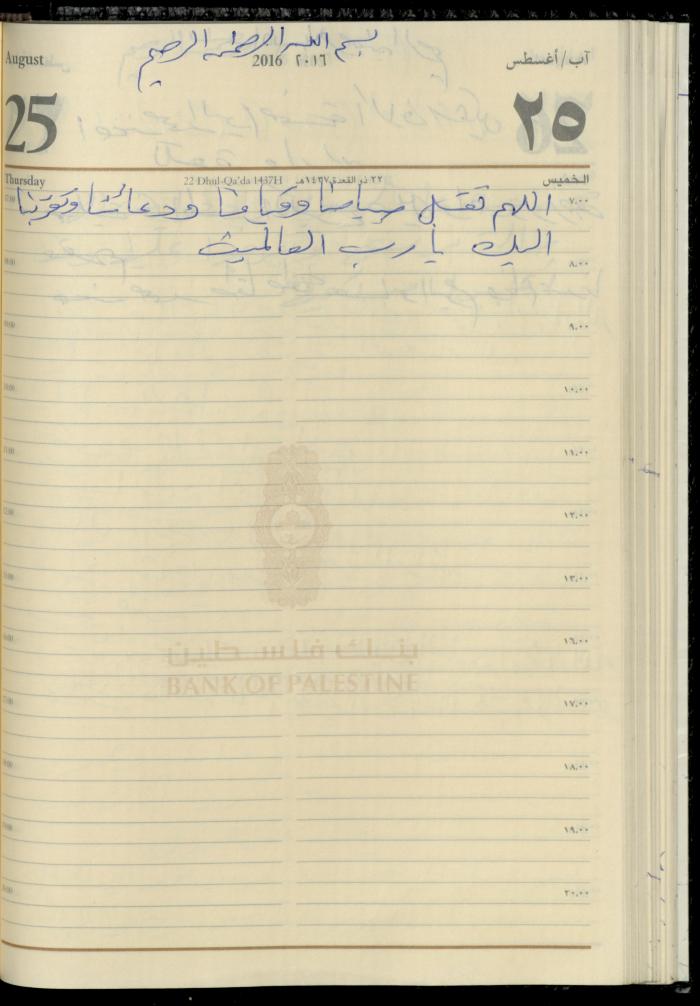 بسم الله الرحمن الرحيم
August 2016 ٢٠١٦ آب/أغسطس
25 ٢٥
Thursday 22 Dhul-Qa'da 1437H ٢٢ ذو القعدة ١٤٣٧هـ الخميس
اللهم تقبل صيامنا وقيامنا ودعائنا وتقربنا
اليك يا رب العالمين
٧,٠٠
٨,٠٠
٩,٠٠
١٠,٠٠
١١,٠٠
١٢,٠٠
١٣,٠٠
١٦,٠٠
بنك فلسطين
BANK OF PALESTINE
١٧,٠٠
١٨,٠٠
١٩,٠٠
٢٠,٠٠